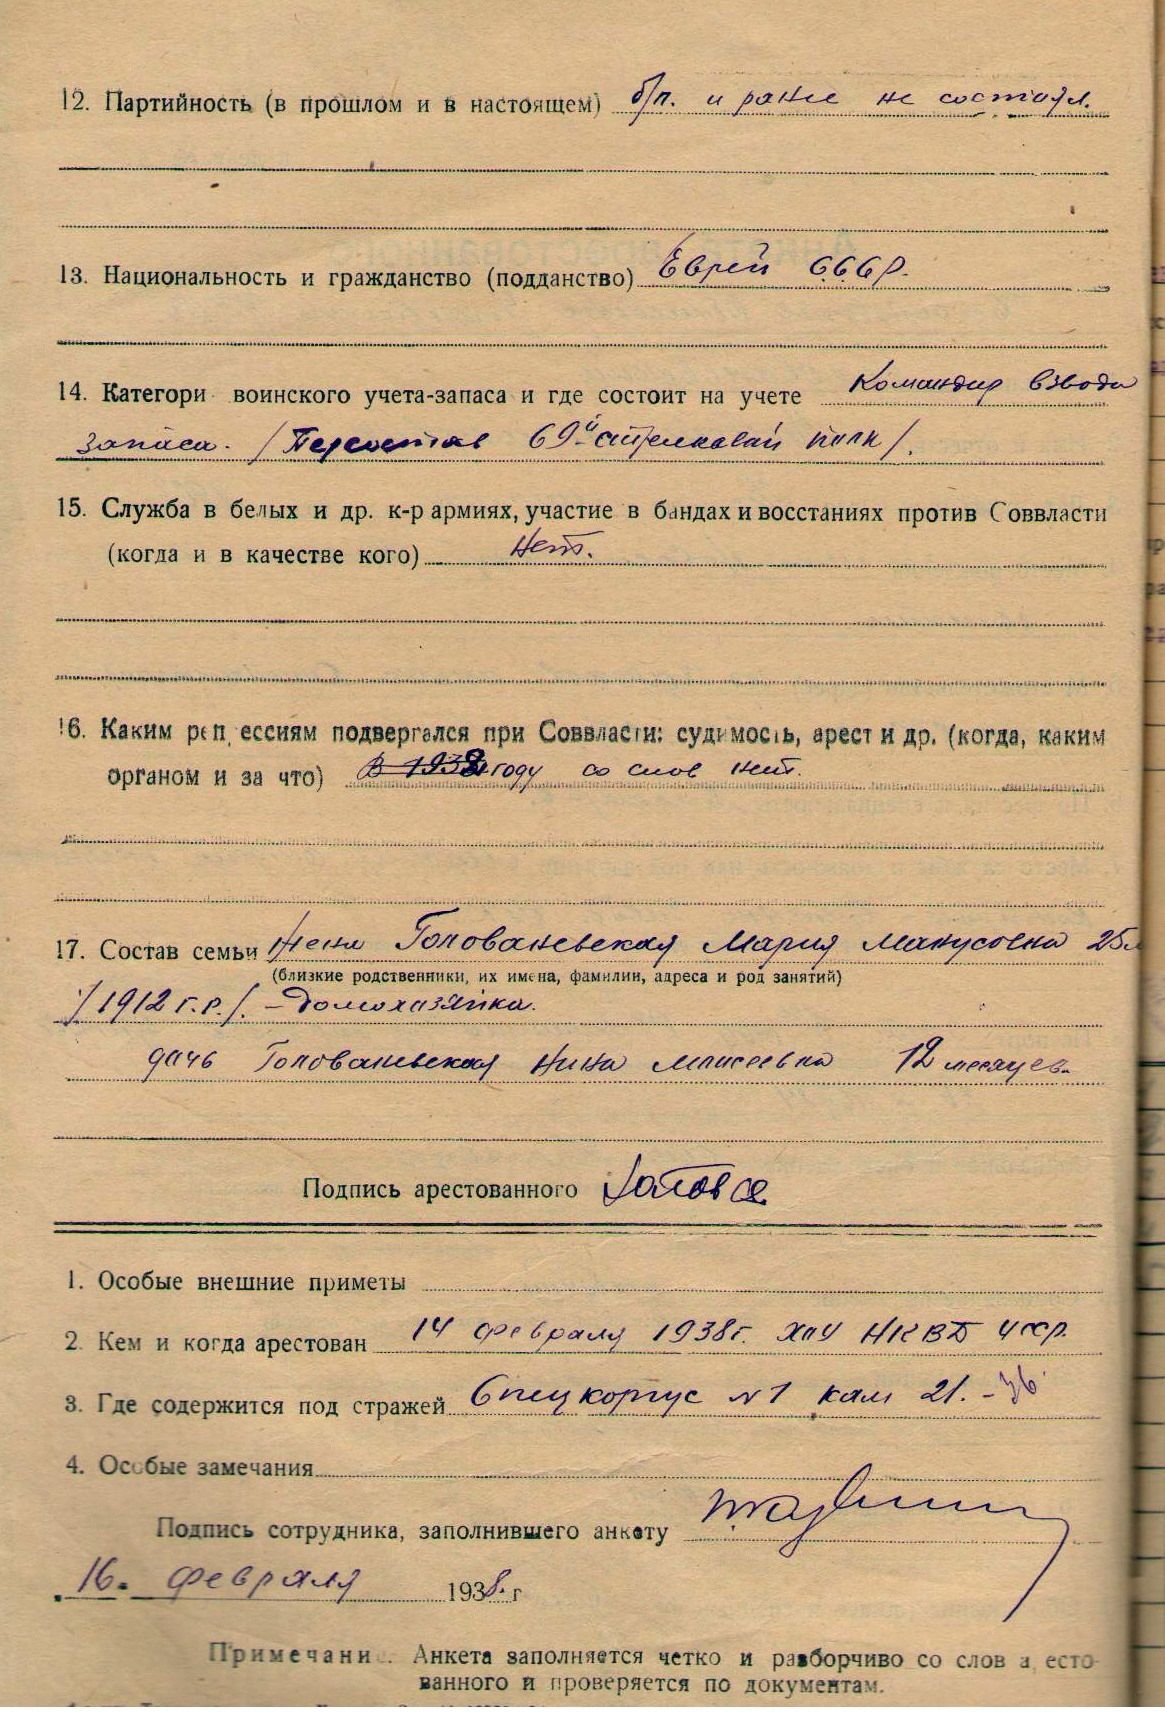 12. Партийность (в прошлом и в настоящем) б/п. и ранее не состоял.
13. Национальность и гражданство (подданство) Еврей СССР.
14. Категори воинского учета-запаса и где состоит на учете Командир взвода
запаса. / 69-й стрелковый полк /.
15. Служба в белых и др. к-р армиях, участие в бандах и восстаниях против Соввласти
(когда и в качестве кого) Нет.
16. Каким реп ессиям подвергался при Соввласти: судимость, арест и др. (когда, каким
органом и за что) В 1938 году со слов нет.
17. Состав семьи Жена Голованевская Мария Манусовна 25л
(близкие родственники, их имена, фамилии, адреса и род занятий)
/1912 г.р./. – домохозяйка.
дочь Голованевская Нина Моисеевна 12 месяцев.
Подпись арестованного
1. Особые внешние приметы
2. Кем и когда арестован 14 февраля 1938г. ХОУ НКВД УССР.
3. Где содержится под стражей Спецкорпус №1 кам 21.
4. Особые замечания
Подпись сотрудника, заполнившего анкету
16. февраля 1938. г
Примечани . Анкета заполняется четко и разборчиво со слов а есто-
ванного и проверяется по документам.